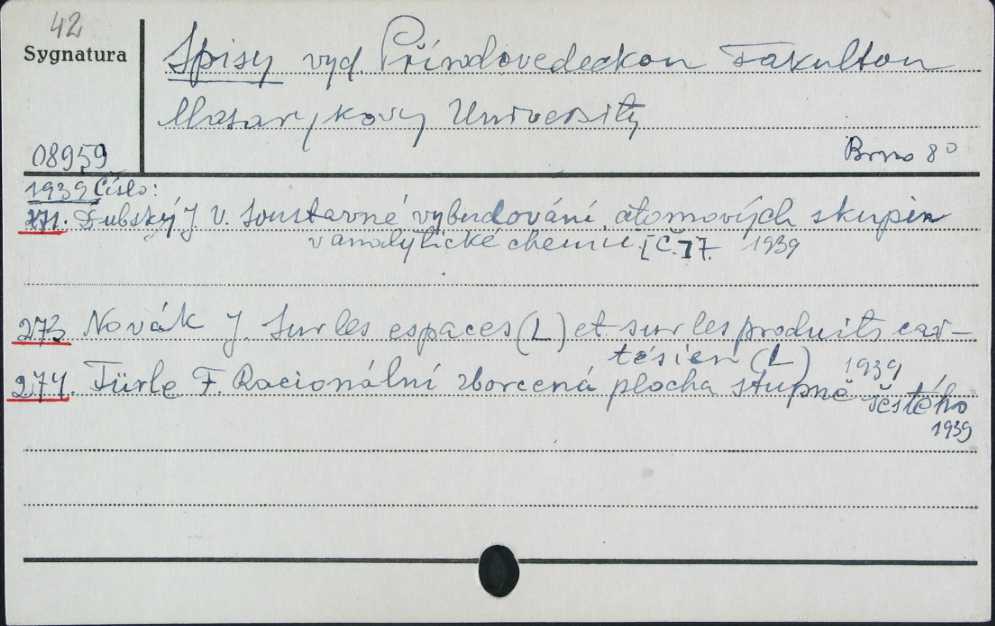 42
Sygnatura
Spisy vyd Přírodovedeckou Fakultou
Masarykovy University
08959
Brno 8°
1939 Číslo:
271. Dubský J V. Soustavné vybudování atomových skupin
v analytické chemii. [Č.] 7. 1939
273 Novák J. Sur les espaces (L) et sur les produits car-
tésien (L) 1939
274. Türle F. Racionální zborcená plocha stupně šestého
1939